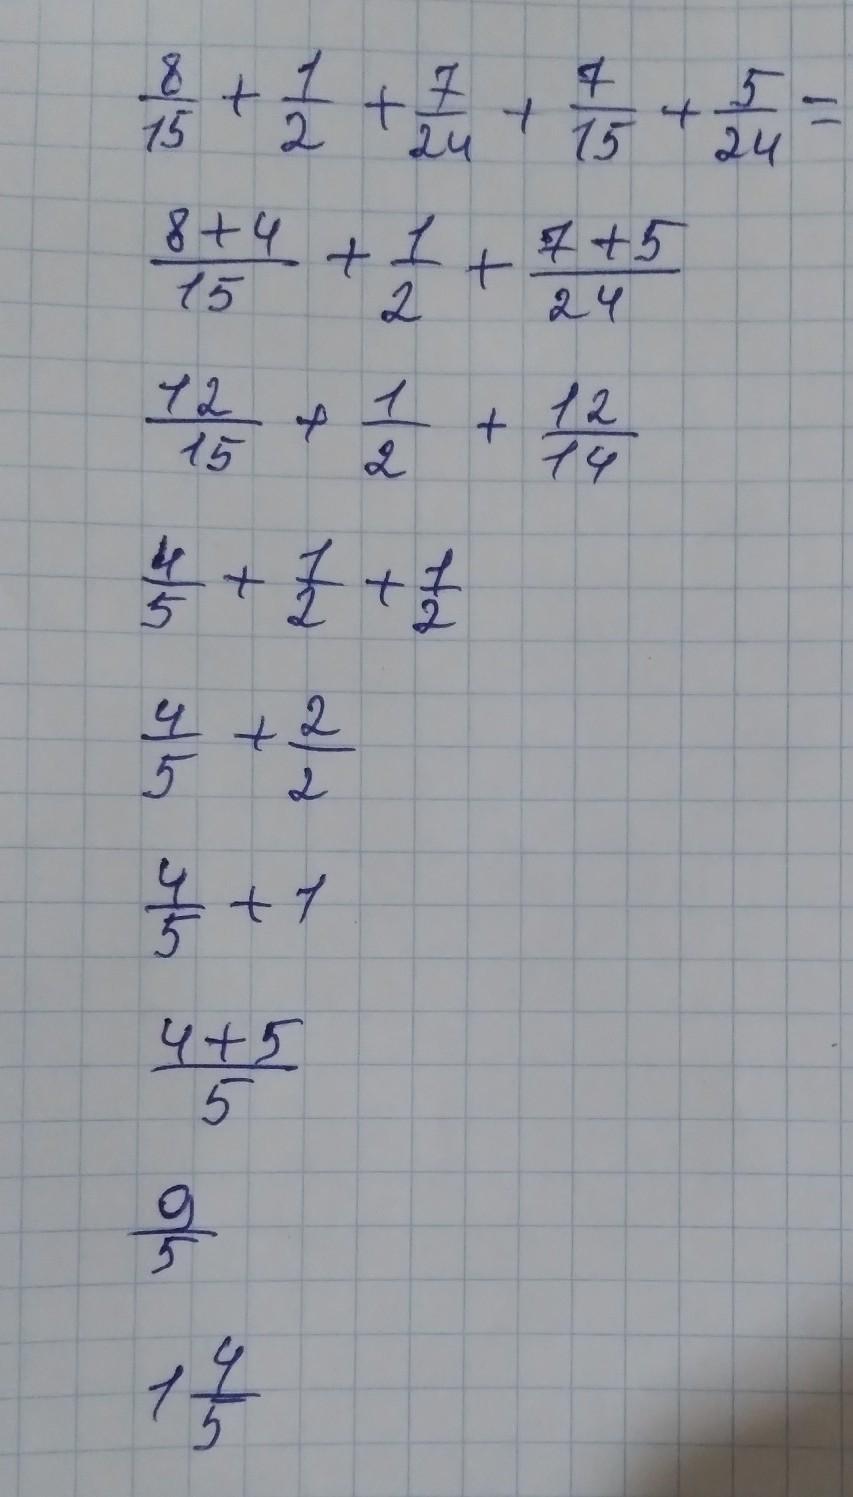 8/15 + 1/2 + 7/24 + 7/15 + 5/24 =
8+4/15 + 1/2 + 7+5/24
12/15 + 1/2 + 12/14
4/5 + 1/2 + 1/2
4/5 + 2/2
4/5 + 1
4+5/5
9/5
1 4/5